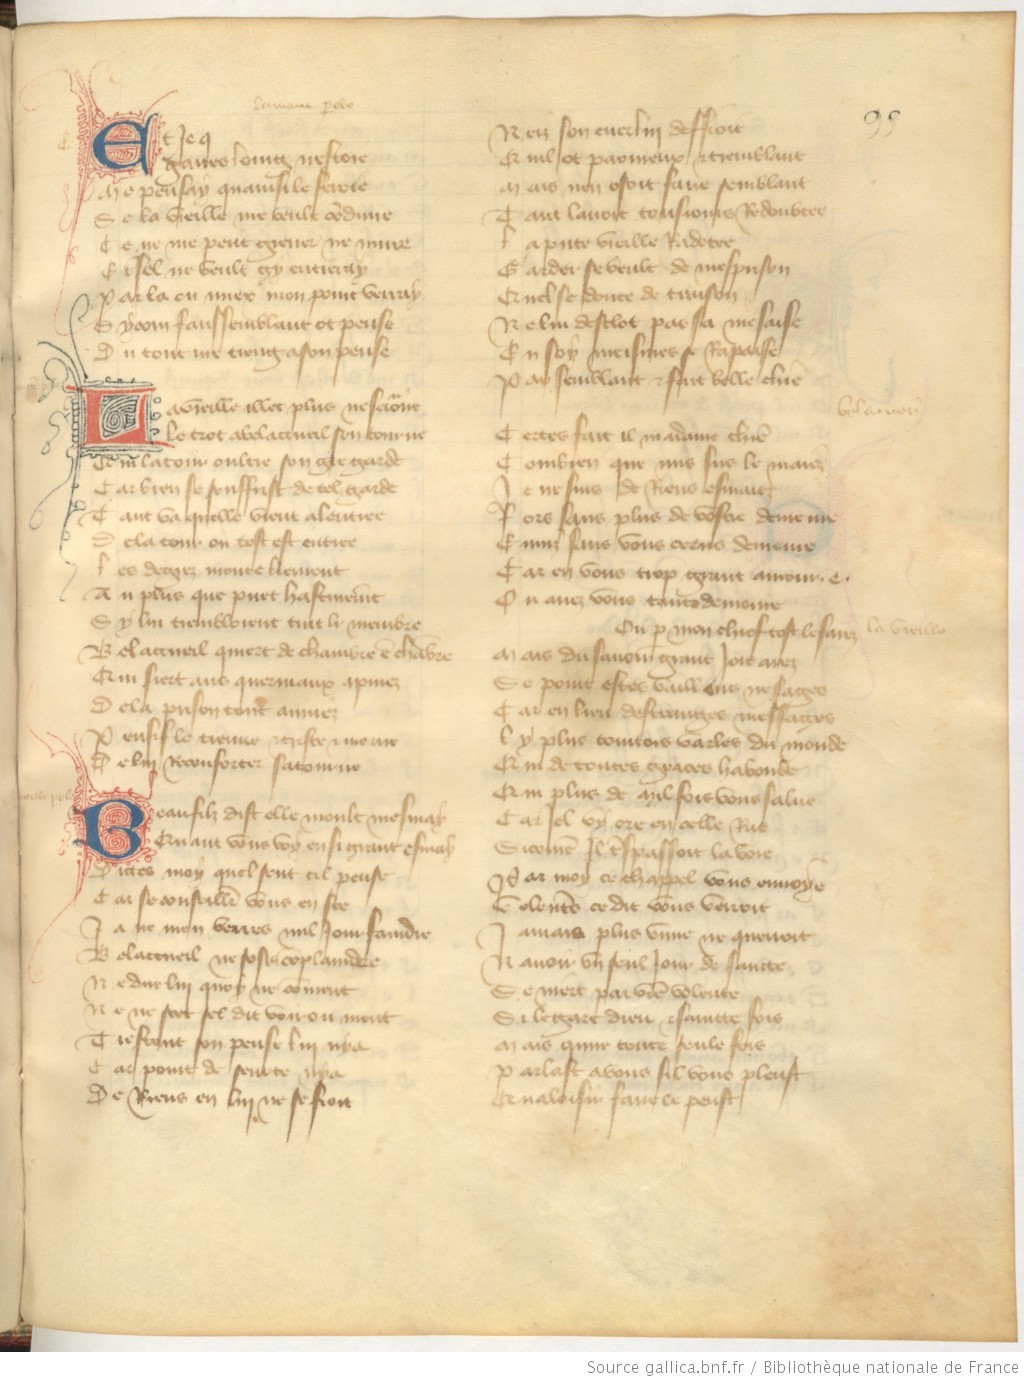 lamant ple
95
Et Je q
gaires loing nestoie
Me pensay quainsi le feroie
Se la vieille me veult coduire
Ce ne me peut grever ne nuire
Et sel ne veult gy entieray
Par la ou miex mon point verray
Sy com faussemblant ot pense
Du tout me tieng a son pense
La vieille illec plus ne seiorne
Le trot a belacueil sen tourne
Cui la tour oultre son gre garde
Car bien se souffrist de tel garde
Tant va quelle vient a lentree
De la tour ou tost est entree
Les degrez monte liement
Au plus que puet hastivemt
Sy lui trembloient tuit li membre
Belacueil quiert de chambre e chabre
Qui siert aus querniaux apuiez
De la prison tout anuiez
Pensif le treuve et triste et morne
De lui reconforter satourne
Beaufilz dist elle moult mesmay
Quant vous voy en si grant esmay
Dictes moy quel sont cil pense
Car se conseillier vous en sce
Ja ne men verres nul Jour faindre
Belacueil ne sose coplaindre
Ne dire lui quoy ne coment
Ne ne scet sel dit voir ou ment
Trestout son pense lui nya
Car point de seurte nya
De Riens en lui ne se fioit
Neiz son cuer lui deffioit
Quil ot paoureux et tremblant
Mais nen osoit faire semblant
Tant lavoit tousiours Redoubtee
La pute vieille Radotee
Garder se veult de mesprison
Quel se doute de traison
Ne lui desclot pas sa mesaise
En soy meismes se Rapaise
Par semblant et fait belle chie
belacueil
Certes fait il ma dame chie
Combien que mis sus le maiez
Je ne suis de Riens esmaiez
Fors sans plus de vostre demeure
Enuiz sans vous ceens demeure
Car en vous trop grant amour e
Ou avez vous tant demoure
Ou p mon chief tost le sarez
la vieille
Mais du savoir grant Joie arez
Se point estes vaillens ne sages
Car en lieu destranges messages
Ly plus courtois varles du monde
Qui de toutes graces habonde
Qui plus de mil fois vous salue
Car Jel vy ore en celle Rue
Si come Il trspassoit la voie
Par moy ce chappel vous envoye
Volentes ce dit vous verroit
Jamais plus vivre ne querroit
Navoir un seul Jour de sancte
Se niert par vre volente
Si le gart dieu et saincte fois
Mais quune toute seule fois
Parlast a vous sil vous pleust
Qua loisir faire se peust